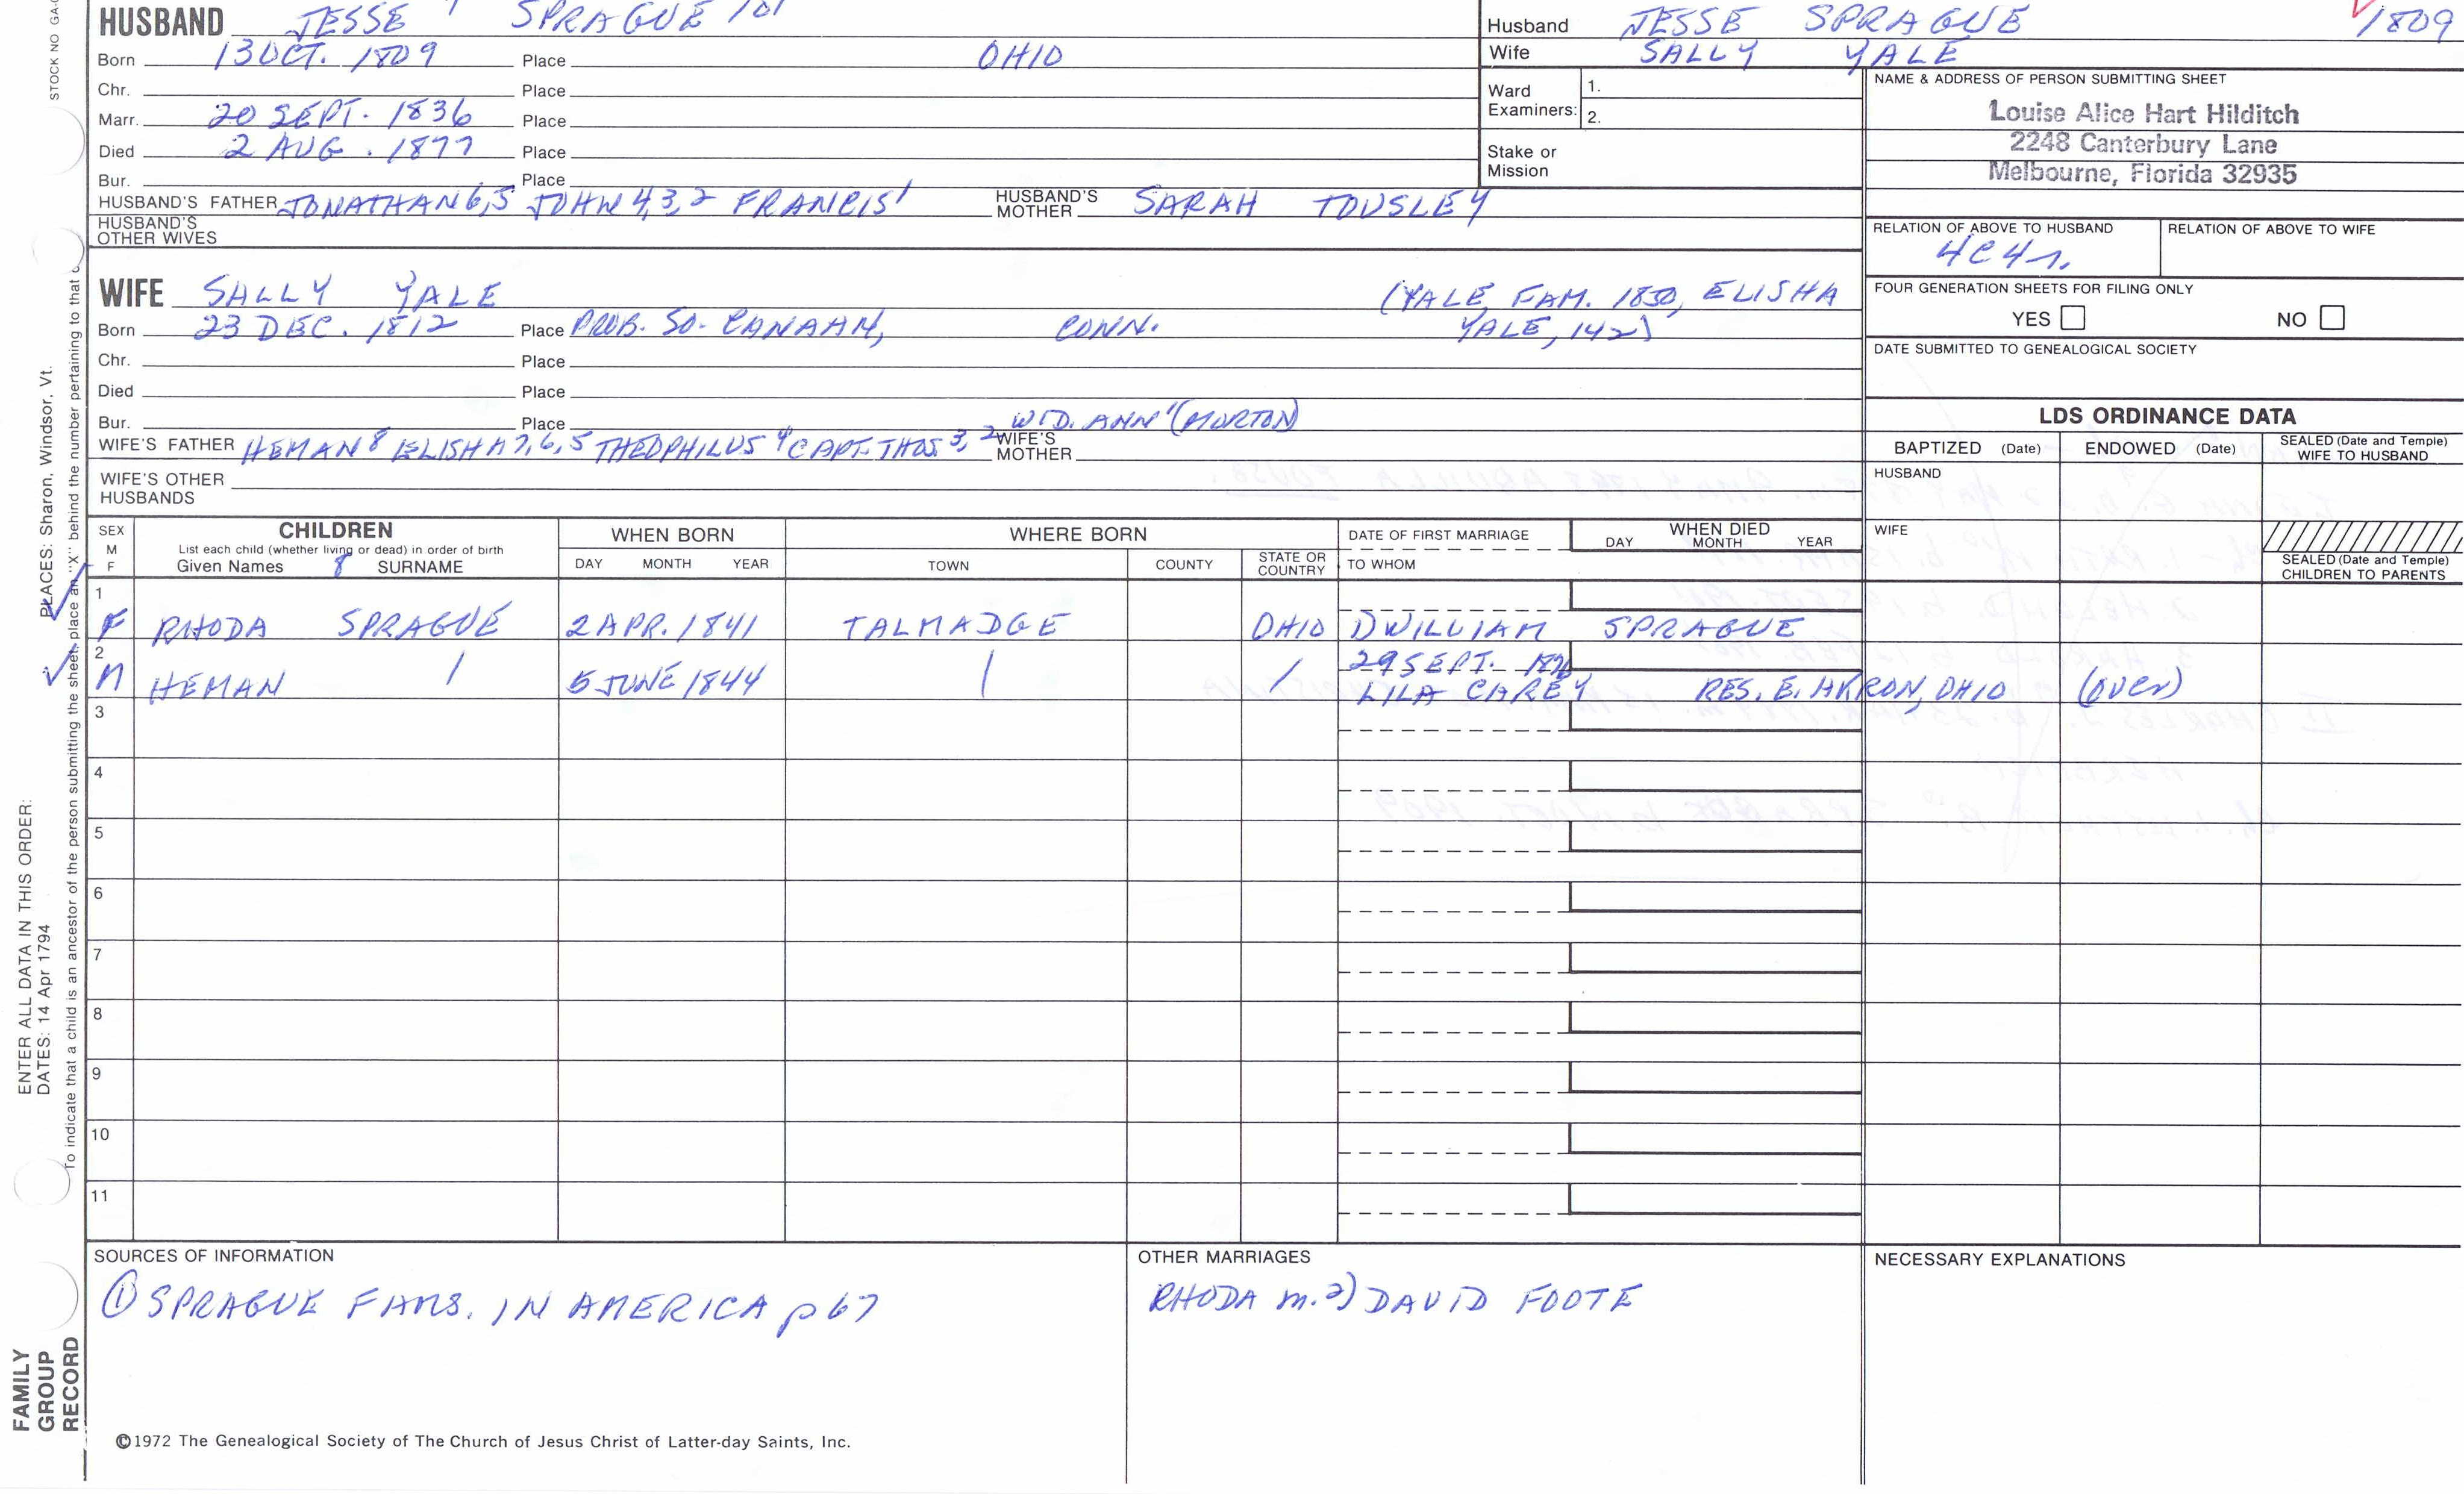 HUSBAND JESSE 7 SPRAGUE 101
Born 13 OCT. 1809 Place OHIO
Chr. Place
Marr. 20 SEPT. 1836 Place
Died 2 AUG. 1877 Place
Bur. Place
HUSBAND'S FATHER JONATHAN 6,5 JOHN 4,3,2 FRANCIS 1 HUSBAND'S MOTHER SARAH TOUSLEY
HUSBAND'S OTHER WIVES
Husband JESSE SPRAGUE 1809
Wife SALLY YALE
Ward Examiners: 1.
2.
Stake or Mission
NAME & ADDRESS OF PERSON SUBMITTING SHEET
Louise Alice Hart Hilditch
2248 Canterbury Lane
Melbourne, Florida 32935
RELATION OF ABOVE TO HUSBAND RELATION OF ABOVE TO WIFE
4C4r.
FOUR GENERATION SHEETS FOR FILING ONLY
YES NO
DATE SUBMITTED TO GENEALOGICAL SOCIETY
WIFE SALLY YALE (YALE FAM. 1850, ELISHA
Born 23 DEC. 1812 Place PROB. SO. CANAAN, CONN. YALE, 142)
Chr. Place
Died Place
Bur. Place WID. ANN 1 (MORTON)
WIFE'S FATHER HEMAN 8 ELISHA 7,6,5 THEOPHILUS 4 CAPT. THOS 3,2 WIFE'S MOTHER
WIFE'S OTHER HUSBANDS
LDS ORDINANCE DATA
BAPTIZED (Date) ENDOWED (Date) SEALED (Date and Temple) WIFE TO HUSBAND
HUSBAND
WIFE
SEALED (Date and Temple) CHILDREN TO PARENTS
SEX M F
CHILDREN
List each child (whether living or dead) in order of birth
Given Names 8 SURNAME
WHEN BORN
DAY MONTH YEAR
WHERE BORN
TOWN COUNTY STATE OR COUNTRY
DATE OF FIRST MARRIAGE
TO WHOM
WHEN DIED
DAY MONTH YEAR
1
F RHODA SPRAGUE 2 APR. 1841 TALMADGE OHIO 1) WILLIAM SPRAGUE
2 29 SEPT.
M HEMAN 5 JUNE 1844 LILA CAREY RES. E. AKRON, OHIO (over)
3
4
5
6
7
8
9
10
11
SOURCES OF INFORMATION
① SPRAGUE FAMS. IN AMERICA p 67
OTHER MARRIAGES
RHODA m. 2) DAVID FOOTE
NECESSARY EXPLANATIONS
©1972 The Genealogical Society of The Church of Jesus Christ of Latter-day Saints, Inc.
STOCK NO GA-
PLACES: Sharon, Windsor, Vt.
To indicate that a child is an ancestor of the person submitting the sheet, place an "X" behind the number pertaining to that
ENTER ALL DATA IN THIS ORDER:
DATES: 14 Apr 1794
FAMILY GROUP RECORD